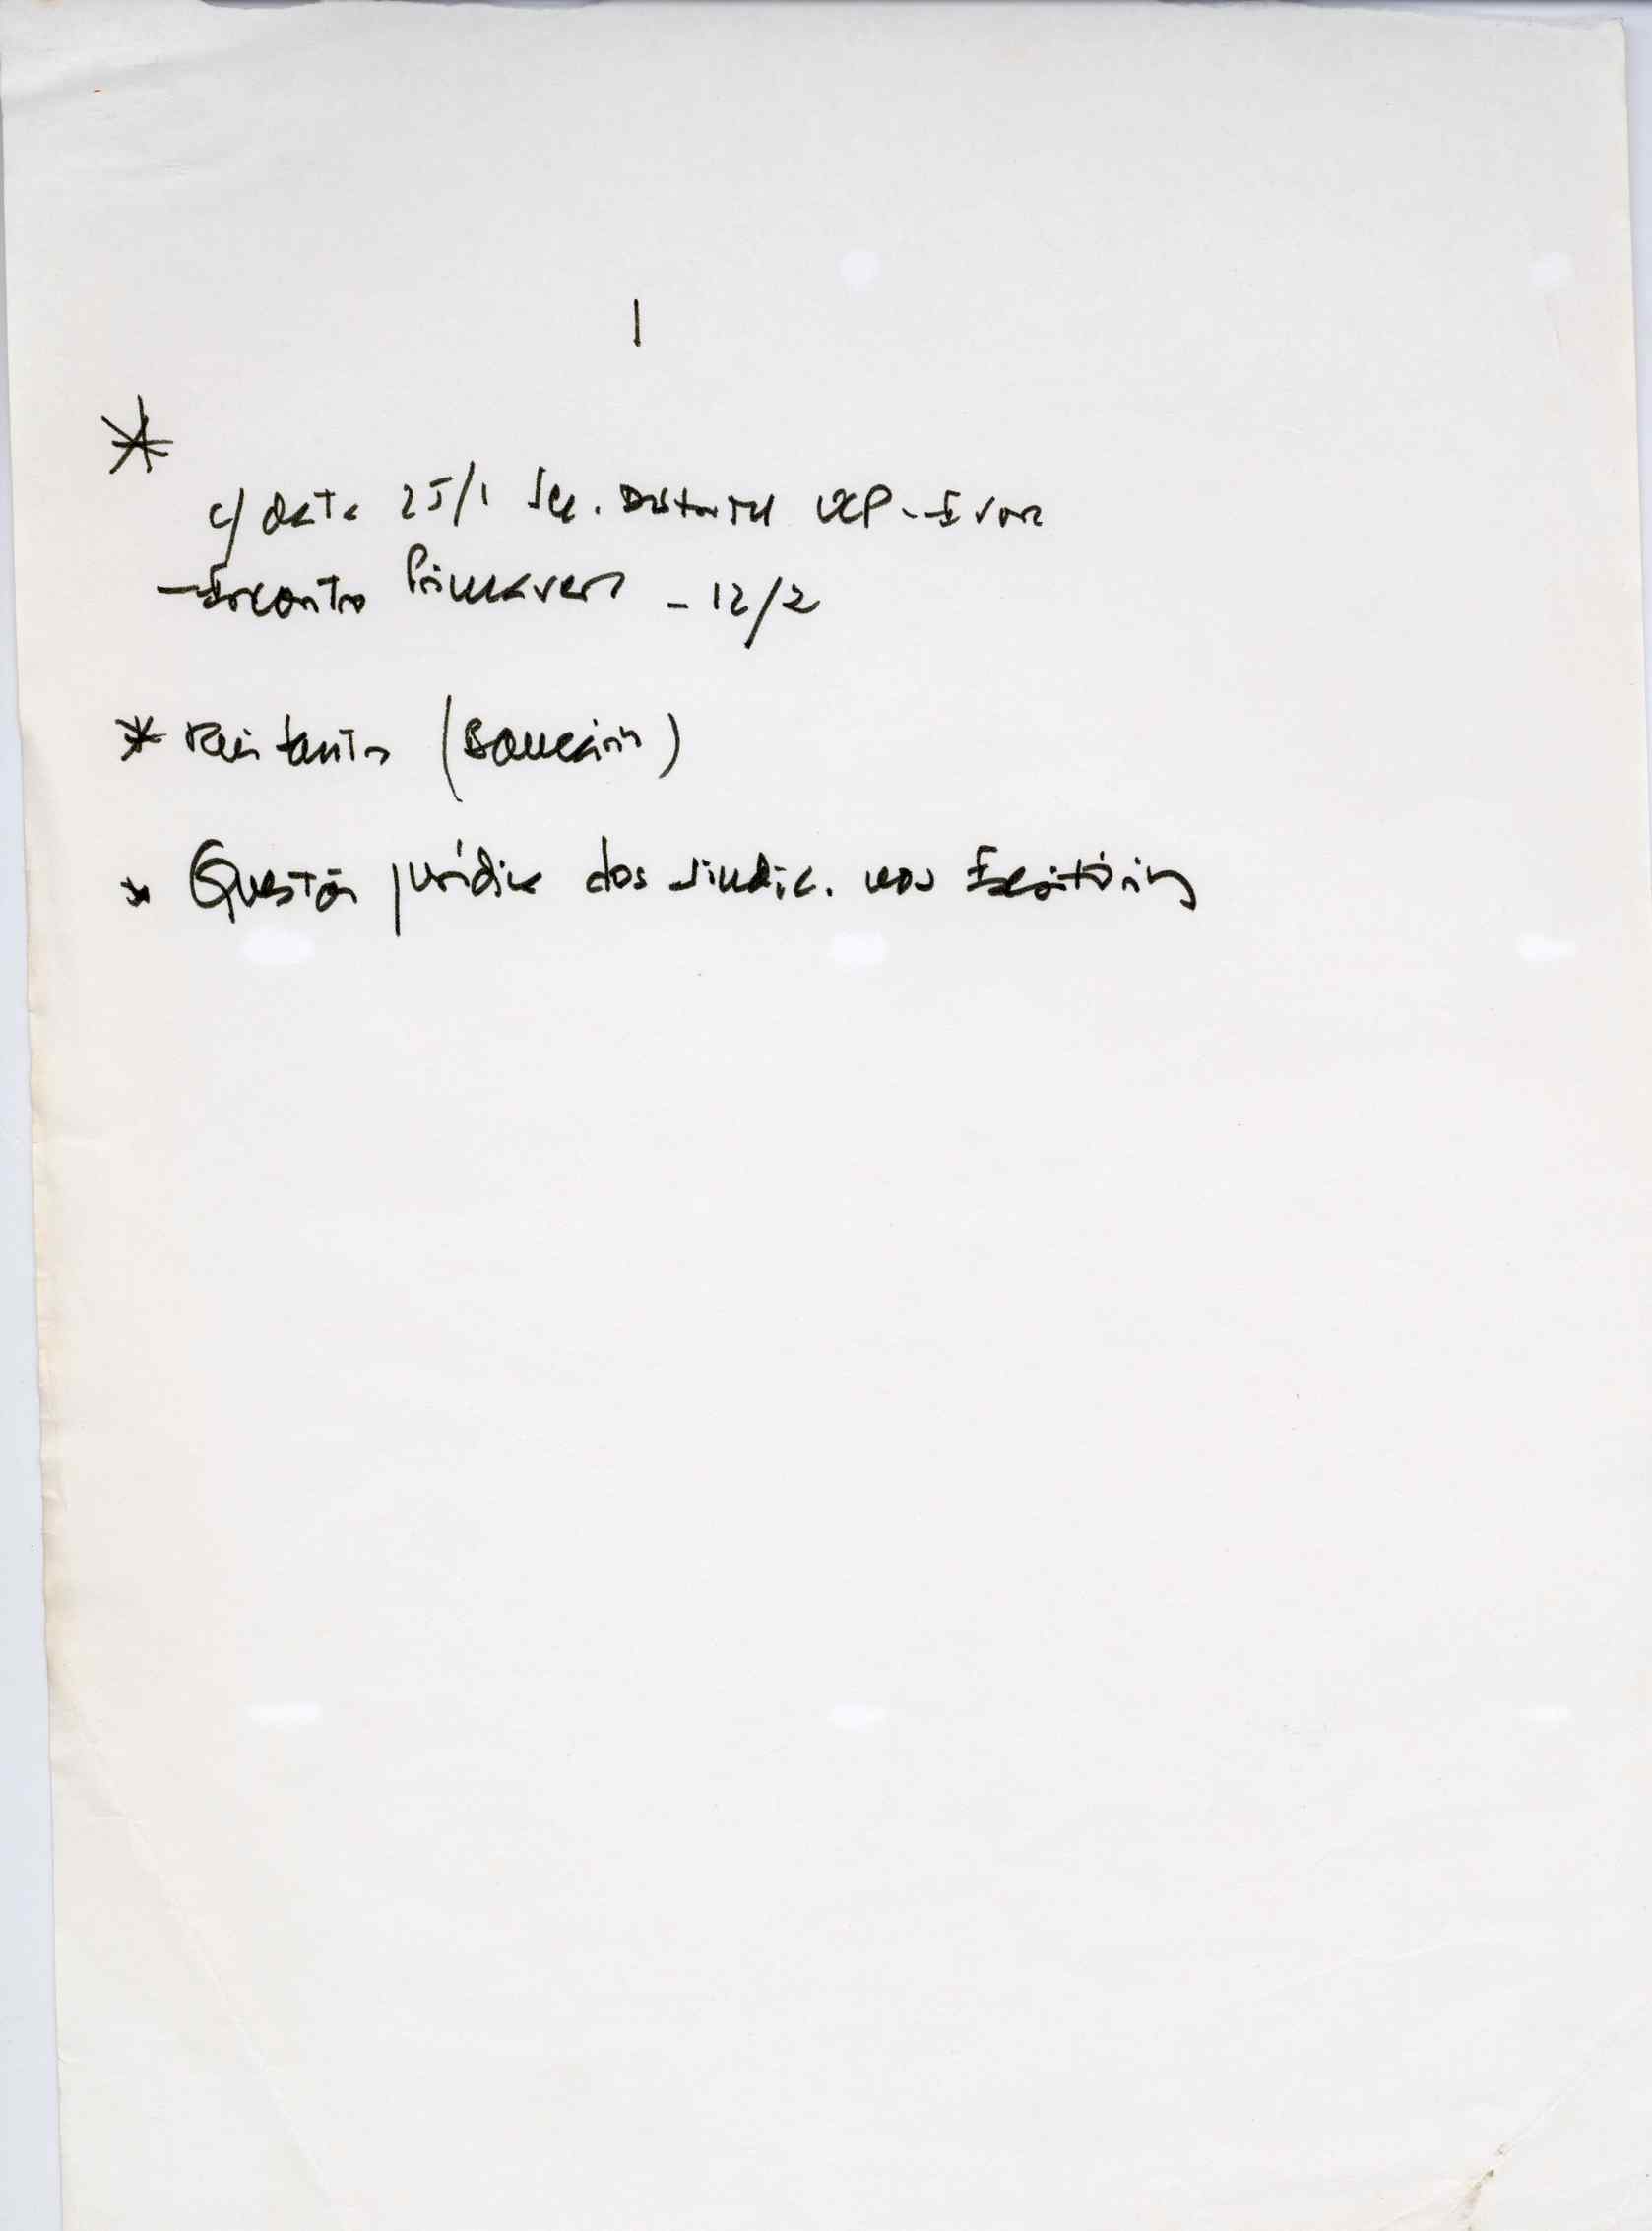 1
*
c/ data 25/1 Sec. Distrital UCP - Evora
- Encontro Primavera - 12/2
* (Bancários)
* Questão jurídica dos sindic. nos Escritórios